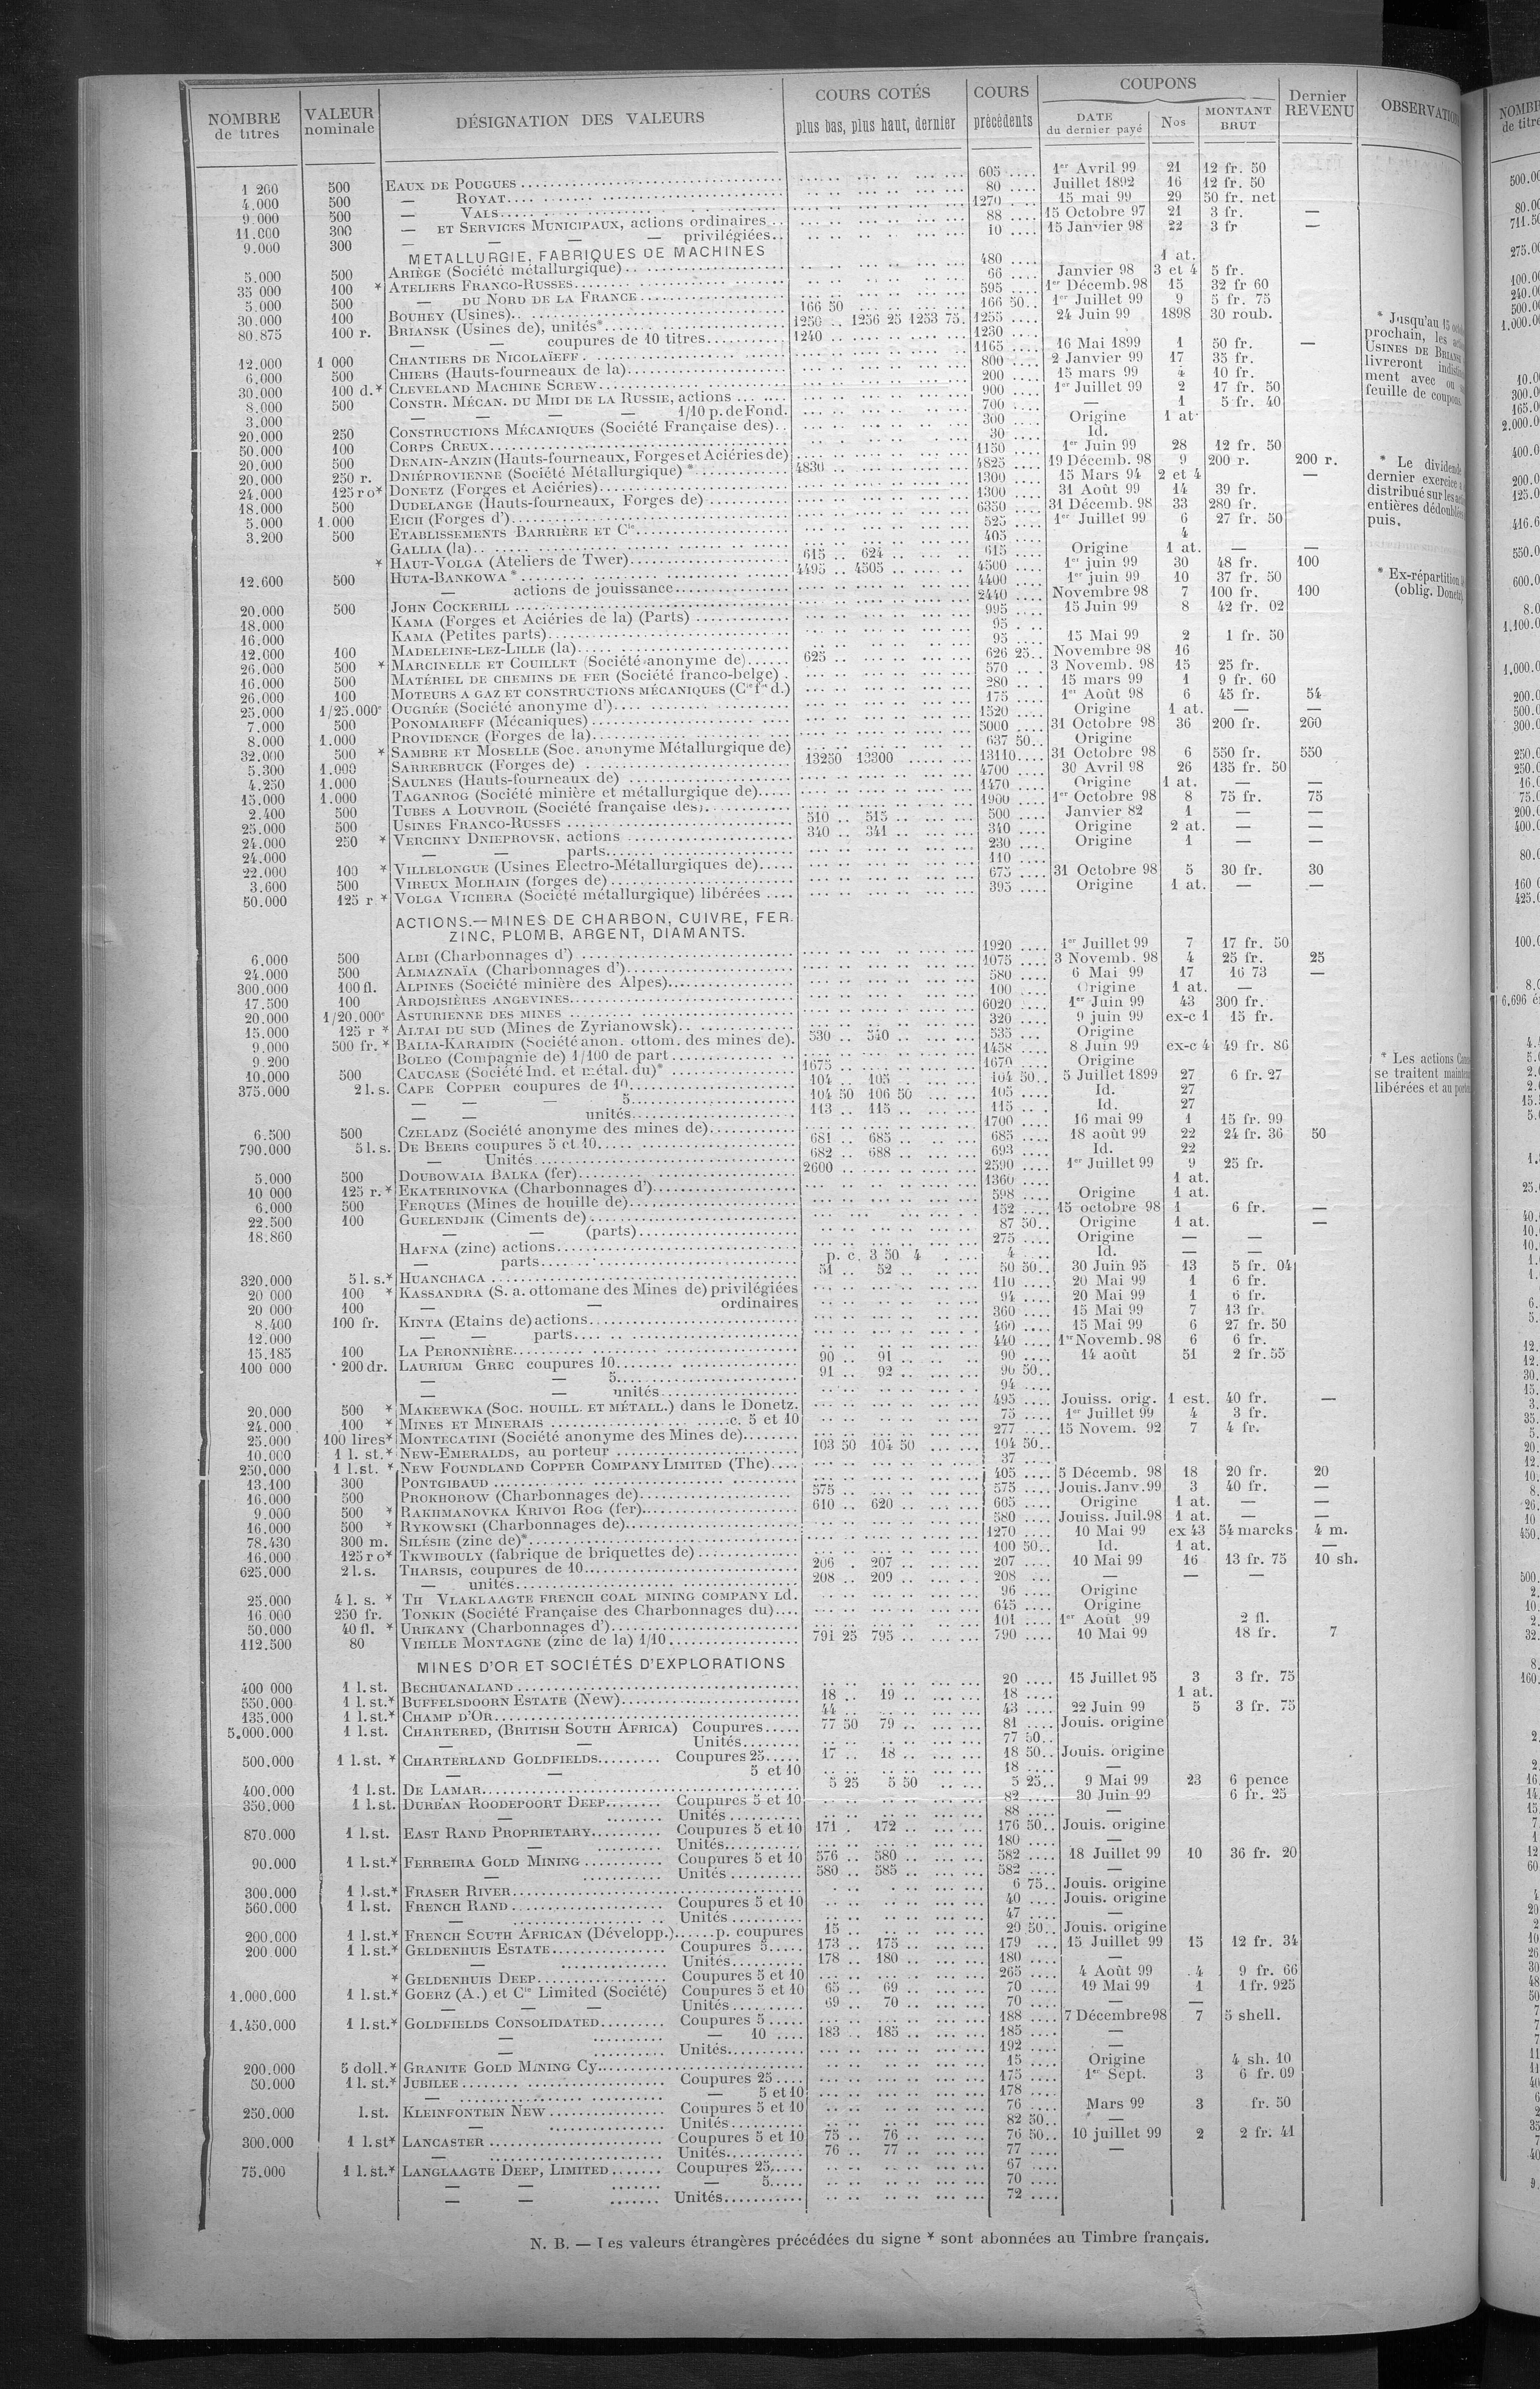 NOMBRE de titres | VALEUR nominale | DÉSIGNATION DES VALEURS | COURS COTÉS plus bas, plus haut, dernier | COURS précédents | COUPONS DATE du dernier payé | Nos | MONTANT BRUT | Dernier REVENU
1 200 500 EAUX DE POUGUES 605 1er Avril 99 21 12 fr. 50
4.000 500 — ROYAT 80 Juillet 1892 16 12 fr. 50
9.000 500 — VALS 1270 15 mai 99 29 50 fr. net
11.000 300 — ET SERVICES MUNICIPAUX, actions ordinaires 88 15 Octobre 97 21 3 fr. —
9.000 300 — — — privilégiées 10 15 Janvier 98 22 3 fr —
METALLURGIE, FABRIQUES DE MACHINES
5.000 500 ARIÈGE (Société métallurgique) 480 1 at.
35 000 100 * ATELIERS FRANCO-RUSSES 66 Janvier 98 3 et 4 5 fr.
5.000 500 — DU NORD DE LA FRANCE 595 1er Décemb. 98 15 32 fr 60
30.000 100 BOUHEY (Usines) 166 50 166 50 1er Juillet 99 9 5 fr. 75
80.875 100 r. BRIANSK (Usines de), unités* 1250 1256 25 1253 75 1255 24 Juin 99 1898 30 roub.
— — coupures de 10 titres 1240 1230
12.000 1 000 CHANTIERS DE NICOLAÏEFF 1165 16 Mai 1899 1 50 fr. —
6.000 500 CHIERS (Hauts-fourneaux de la) 800 2 Janvier 99 17 35 fr.
30.000 100 d.* CLEVELAND MACHINE SCREW 200 15 mars 99 4 10 fr.
8.000 500 CONSTR. MÉCAN. DU MIDI DE LA RUSSIE, actions 900 1er Juillet 99 2 17 fr. 50
3.000 — — — 1/10 p. de Fond. 700 — 1 5 fr. 40
20.000 250 CONSTRUCTIONS MÉCANIQUES (Société Française des) 300 Origine 1 at
50.000 100 CORPS CREUX 30 Id.
20.000 500 DENAIN-ANZIN (Hauts-fourneaux, Forges et Aciéries de) 1150 1er Juin 99 28 12 fr. 50
20.000 250 r. DNIÉPROVIENNE (Société Métallurgique) * 4830 4825 19 Décemb. 98 9 200 r. 200 r.
24.000 125 r o* DONETZ (Forges et Aciéries) 1300 15 Mars 94 2 et 4 —
18.000 500 DUDELANGE (Hauts-fourneaux, Forges de) 1300 31 Août 99 14 39 fr.
5.000 1.000 EICH (Forges d') 6350 31 Décemb. 98 33 280 fr.
3.200 500 ETABLISSEMENTS BARRIÈRE ET Cie 525 1er Juillet 99 6 27 fr. 50
GALLIA (la) 405 4
* HAUT-VOLGA (Ateliers de Twer) 615 624 615 Origine 1 at. — —
12.600 500 HUTA-BANKOWA * 4495 4505 4500 1er juin 99 30 48 fr. 100
— actions de jouissance 4400 1er juin 99 10 37 fr. 50
20.000 500 JOHN COCKERILL 2440 Novembre 98 7 100 fr. 100
18.000 KAMA (Forges et Aciéries de la) (Parts) 995 15 Juin 99 8 42 fr. 02
16.000 KAMA (Petites parts) 95
12.000 100 MADELEINE-LEZ-LILLE (la) 95 15 Mai 99 2 1 fr. 50
26.000 500 * MARCINELLE ET COUILLET (Société anonyme de) 625 626 25 Novembre 98 16
16.000 500 MATÉRIEL DE CHEMINS DE FER (Société franco-belge) 570 3 Novemb. 98 15 25 fr.
26.000 100 MOTEURS A GAZ ET CONSTRUCTIONS MÉCANIQUES 280 15 mars 99 1 9 fr. 60
25.000 1/25.000e OUGRÉE (Société anonyme d') 175 1er Août 98 6 45 fr. 54
7.000 500 PONOMAREFF (Mécaniques) 1520 Origine 1 at. — —
8.000 1.000 PROVIDENCE (Forges de la) 5000 31 Octobre 98 36 200 fr. 200
32.000 500 * SAMBRE ET MOSELLE (Soc. anonyme Métallurgique de) 637 50 Origine
5.300 1.000 SARREBRUCK (Forges de) 13250 13300 13110 31 Octobre 98 6 550 fr. 550
4.250 1.000 SAULNES (Hauts-fourneaux de) 4700 30 Avril 98 26 135 fr. 50
15.000 1.000 TAGANROG (Société minière et métallurgique de) 1470 Origine 1 at. — —
2.400 500 TUBES A LOUVROIL (Société française des) 1900 1er Octobre 98 8 75 fr. 75
25.000 500 USINES FRANCO-RUSSES 510 515 500 Janvier 82 1 — —
24.000 250 * VERCHNY DNIEPROVSK, actions 340 341 340 Origine 2 at. — —
24.000 — — parts 230 Origine 1 — —
22.000 100 * VILLELONGUE (Usines Electro-Métallurgiques de) 110
3.600 500 VIREUX MOLHAIN (forges de) 675 31 Octobre 98 5 30 fr. 30
50.000 125 r * VOLGA VICHERA (Société métallurgique) libérées 395 Origine 1 at. — —
ACTIONS.—MINES DE CHARBON, CUIVRE, FER.
ZINC, PLOMB, ARGENT, DIAMANTS.
6.000 500 ALBI (Charbonnages d') 1920 1er Juillet 99 7 17 fr. 50
24.000 500 ALMAZNAÏA (Charbonnages d') 1075 3 Novemb. 98 4 25 fr. 25
300.000 100 fl. ALPINES (Société minière des Alpes) 580 6 Mai 99 17 16 73 —
17.500 100 ARDOISIÈRES ANGEVINES 100 Origine 1 at. —
20.000 1/20.000e ASTURIENNE DES MINES 6020 1er Juin 99 43 300 fr.
15.000 125 r * ALTAI DU SUD (Mines de Zyrianowsk) 320 9 juin 99 ex-c 1 15 fr.
9.000 500 fr. * BALIA-KARAIDIN (Société anon. ottom. des mines de) 530 540 535 Origine
9.200 BOLEO (Compagnie de) 1/100 de part 1458 8 Juin 99 ex-c 4 49 fr. 86
10.000 500 CAUCASE (Société Ind. et métal. du)* 1675 1670 Origine
375.000 2 l. s. CAPE COPPER coupures de 10 104 105 104 50 5 Juillet 1899 27 6 fr. 27
— — — 5 104 50 106 50 105 Id. 27
— — unités 113 115 115 Id. 27
6.500 500 CZELADZ (Société anonyme des mines de) 1700 16 mai 99 1 15 fr. 99
790.000 5 l. s. DE BEERS coupures 5 et 10 681 685 685 18 août 99 22 24 fr. 36 50
— Unités 682 688 693 Id. 22
5.000 500 DOUBOWAIA BALKA (fer) 2600 2590 1er Juillet 99 9 25 fr.
10 000 125 r. * EKATERINOVKA (Charbonnages d') 1360 1 at.
6.000 500 FERQUES (Mines de houille de) 598 Origine 1 at.
22.500 100 GUELENDJIK (Ciments de) 152 15 octobre 98 1 6 fr. —
18.860 — — (parts) 87 50 Origine 1 at. —
HAFNA (zinc) actions 275 Origine — —
— parts p. c. 3 50 4 4 Id. — —
320.000 5 l. s.* HUANCHACA 51 52 50 50 30 Juin 95 13 5 fr. 04
20 000 100 * KASSANDRA (S. a. ottomane des Mines de) privilégiées 110 20 Mai 99 1 6 fr.
20 000 100 — — ordinaires 94 20 Mai 99 1 6 fr.
8.400 100 fr. KINTA (Etains de) actions 360 15 Mai 99 7 13 fr.
12.000 — — parts 460 15 Mai 99 6 27 fr. 50
15.185 100 LA PERONNIÈRE 440 1er Novemb. 98 6 6 fr.
100 000 200 dr. LAURIUM GREC coupures 10 90 91 90 14 août 51 2 fr. 55
— — 5 91 92 90 50
— — unités 94
20.000 500 * MAKEEWKA (SOC. HOUILL. ET MÉTALL.) dans le Donetz 495 Jouiss. orig. 1 est. 40 fr. —
24.000 100 * MINES ET MINERAIS c. 5 et 10 75 1er Juillet 99 4 3 fr.
25.000 100 lires* MONTECATINI (Société anonyme des Mines de) 277 15 Novem. 92 7 4 fr.
10.000 1 l. st. * NEW-EMERALDS, au porteur 103 50 104 50 104 50
250.000 1 l. st. * NEW FOUNDLAND COPPER COMPANY LIMITED (The) 37
13.100 300 PONTGIBAUD 405 5 Décemb. 98 18 20 fr. 20
16.000 500 PROKHOROW (Charbonnages de) 575 575 Jouis. Janv. 99 3 40 fr. —
9.000 500 * RAKHMANOVKA KRIVOI ROG (fer) 610 620 605 Origine 1 at. — —
16.000 500 * RYKOWSKI (Charbonnages de) 580 Jouiss. Juil. 98 1 at. — —
78.430 300 m. SILÉSIE (zinc de)* 1270 10 Mai 99 ex 43 54 marcks 4 m.
16.000 125 r o* TKWIBOULY (fabrique de briquettes de) 100 50 Id. 1 at. —
625.000 2 l. s. THARSIS, coupures de 10 206 207 207 10 Mai 99 16 13 fr. 75 10 sh.
— unités 208 209 208 — — —
25.000 4 l. s. * TH VLAKLAAGTE FRENCH COAL MINING COMPANY Ld. 96 Origine
16.000 250 fr. TONKIN (Société Française des Charbonnages du) 645 Origine
50.000 40 fl. * URIKANY (Charbonnages d') 101 1er Août 99 2 fl.
112.500 80 VIEILLE MONTAGNE (zinc de la) 1/10 791 25 795 790 10 Mai 99 18 fr. 7
MINES D'OR ET SOCIÉTÉS D'EXPLORATIONS
400 000 1 l. st. BECHUANALAND 20 15 Juillet 95 3 3 fr. 75
550.000 1 l. st.* BUFFELSDOORN ESTATE (New) 18 19 18 1 at.
135.000 1 l. st.* CHAMP D'OR 44 43 22 Juin 99 5 3 fr. 75
5.000.000 1 l. st. CHARTERED, (BRITISH SOUTH AFRICA) Coupures 77 50 79 81 Jouis. origine
— — Unités 77 50
500.000 1 l. st. * CHARTERLAND GOLDFIELDS Coupures 25 17 18 18 50 Jouis. origine
— — 5 et 10 18 —
400.000 1 l. st. DE LAMAR 5 25 5 50 5 25 9 Mai 99 23 6 pence
350.000 1 l. st. DURBAN ROODEPOORT DEEP Coupures 5 et 10 82 30 Juin 99 6 fr. 25
— Unités 88 —
870.000 1 l. st. EAST RAND PROPRIETARY Coupures 5 et 10 171 172 176 50 Jouis. origine
— Unités 180 —
90.000 1 l. st.* FERREIRA GOLD MINING Coupures 5 et 10 576 580 582 18 Juillet 99 10 36 fr. 20
— Unités 580 585 582 —
300.000 1 l. st.* FRASER RIVER 6 75 Jouis. origine
560.000 1 l. st. FRENCH RAND Coupures 5 et 10 40 Jouis. origine
— Unités 47 —
200.000 1 l. st.* FRENCH SOUTH AFRICAN (Développ.) p. coupures 15 20 50 Jouis. origine
200 000 1 l. st.* GELDENHUIS ESTATE Coupures 5 173 175 179 15 Juillet 99 15 12 fr. 34
— Unités 178 180 180 —
* GELDENHUIS DEEP Coupures 5 et 10 265 4 Août 99 4 9 fr. 66
1.000.000 1 l. st.* GOERZ (A.) et Cie Limited (Société) Coupures 5 et 10 65 69 70 19 Mai 99 1 1 fr. 925
— — — Unités 69 70 70 — —
1.450.000 1 l. st.* GOLDFIELDS CONSOLIDATED Coupures 5 188 7 Décembre 98 7 5 shell.
— — 10 183 185 185 —
— Unités 192 —
200.000 5 doll.* GRANITE GOLD MINING Cy 15 Origine 4 sh. 10
50.000 1 l. st.* JUBILEE Coupures 25 175 1er Sept. 3 6 fr. 09
— — 5 et 10 178
250.000 l. st. KLEINFONTEIN NEW Coupures 5 et 10 76 Mars 99 3 fr. 50
— Unités 82 50 —
300.000 1 l. st* LANCASTER Coupures 5 et 10 75 76 76 50 10 juillet 99 2 2 fr. 41
— Unités 76 77 77 —
75.000 1 l. st.* LANGLAAGTE DEEP, LIMITED Coupures 25 67
— — — 5 70
— — Unités 72
* Jusqu'au 15
prochain, les
USINES DE
livreront
ment avec ou
feuille de coupons.
* Le dividende
dernier exercice
distribué sur les
entières
puis.
* Ex-répartition
(oblig.
* Les actions
se traitent
libérées et au
N. B. — Les valeurs étrangères précédées du signe * sont abonnées au Timbre français.